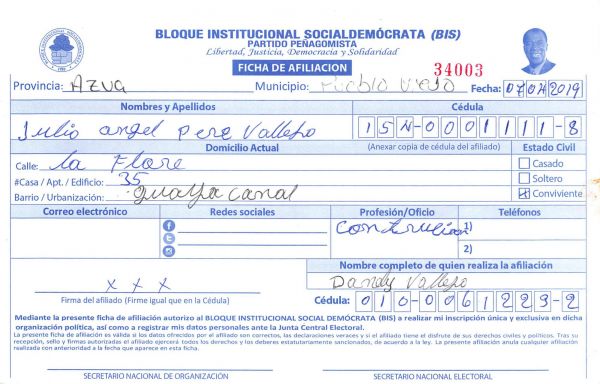 BLOQUE INSTITUCIONAL SOCIALDEMÓCRATA (BIS)
PARTIDO PEÑAGOMISTA
Libertad, Justicia, Democracia y Solidaridad
FICHA DE AFILIACION
34003
Provincia: AZUA Municipio: Pueblo Viejo Fecha: 07 04 2019
Nombres y Apellidos Cédula
Julio angel Pere Vallejo 154-0001111-8
Domicilio Actual (Anexar copia de cédula del afiliado) Estado Civil
Calle: La Flore Casado
#Casa / Apt. / Edificio: 35 Soltero
Barrio / Urbanización: guayacanal Conviviente
Correo electrónico Redes sociales Profesión/Oficio Teléfonos
1)
2)
Nombre completo de quien realiza la afiliación
x x x Dandy Vallejo
Firma del afiliado (Firme igual que en la Cédula) Cédula: 010-0061229-2
Mediante la presente ficha de afiliación autorizo al BLOQUE INSTITUCIONAL SOCIAL DEMÓCRATA (BIS) a realizar mi inscripción única y exclusiva en dicha
organización política, así como a registrar mis datos personales ante la Junta Central Electoral.
La presente ficha de afiliación es válida si los datos ofrecidos por el afiliado son correctos, las declaraciones veraces y si el afiliado tiene el disfrute de sus derechos civiles y políticos. Tras su
recepción, sello y firmas autorizadas el afiliado ejercerá todos los derechos y los deberes estatutariamente sancionados, de acuerdo a la ley. La presente afiliación anula cualquier afiliación
realizada con anterioridad a la fecha que aparece en esta ficha.
SECRETARIO NACIONAL DE ORGANIZACIÓN SECRETARIO NACIONAL ELECTORAL